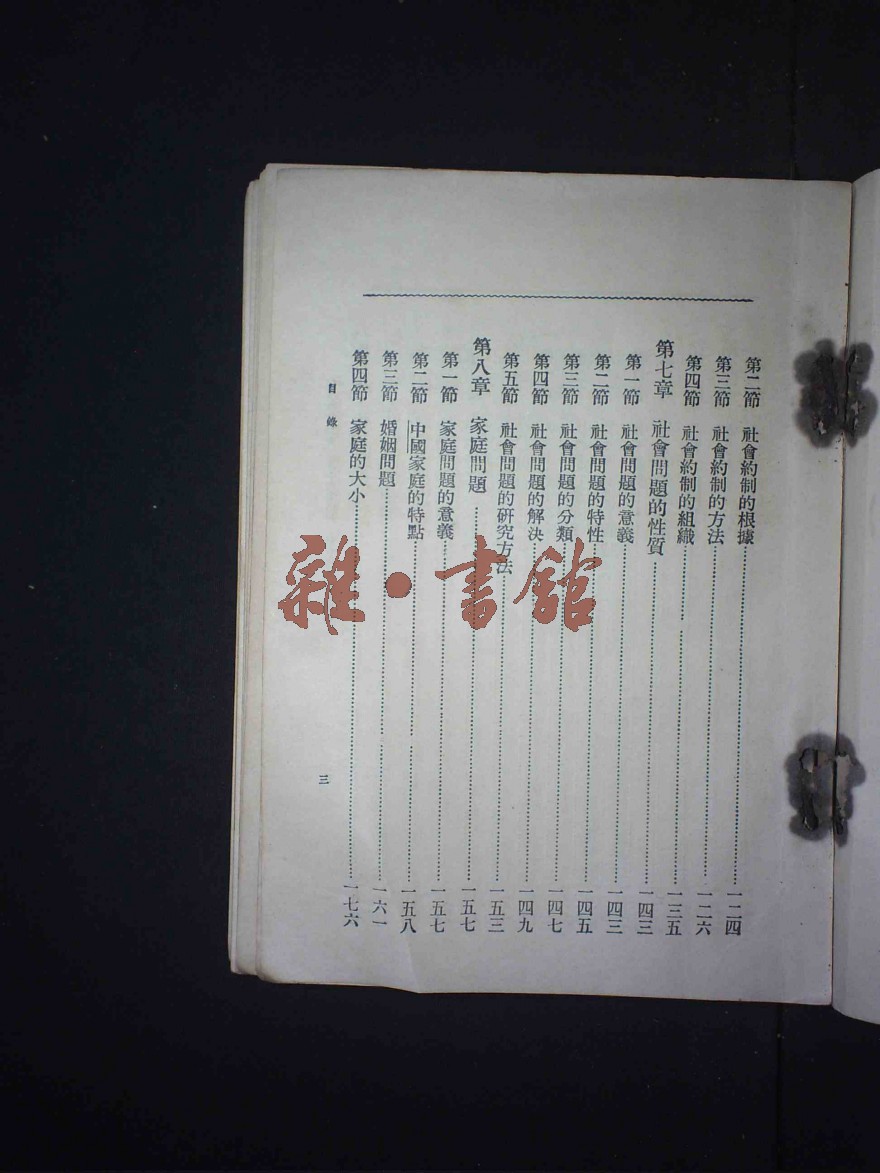 第二節　社會約制的根據……一二四
第三節　社會約制的方法……一二六
第四節　社會約制的組織……一三五
第七章　社會問題的性質……一四三
第一節　社會問題的意義……一四三
第二節　社會問題的特性……一四五
第三節　社會問題的分類……一四七
第四節　社會問題的解決……一四九
第五節　社會問題的研究方法……一五三
第八章　家庭問題……一五七
第一節　家庭問題的意義……一五七
第二節　中國家庭的特點……一五八
第三節　婚姻問題……一六一
第四節　家庭的大小……一七六
目錄　三
雜·書館